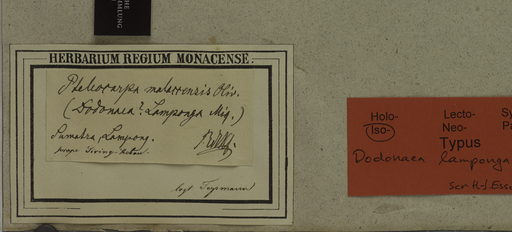 HE
MMLUNG
HERBARIUM REGIUM MONACENSE.
Pteleocarpa malaccensis Oliv.
(Dodonaea? Lamponga Miq.)
Sumatra, Lampong.
prope
legt Teysmann
Holo-
Iso-
Lecto-
Neo-
Sy
Pa
Typus
Dodonaea lamponga
scr H-J Esse